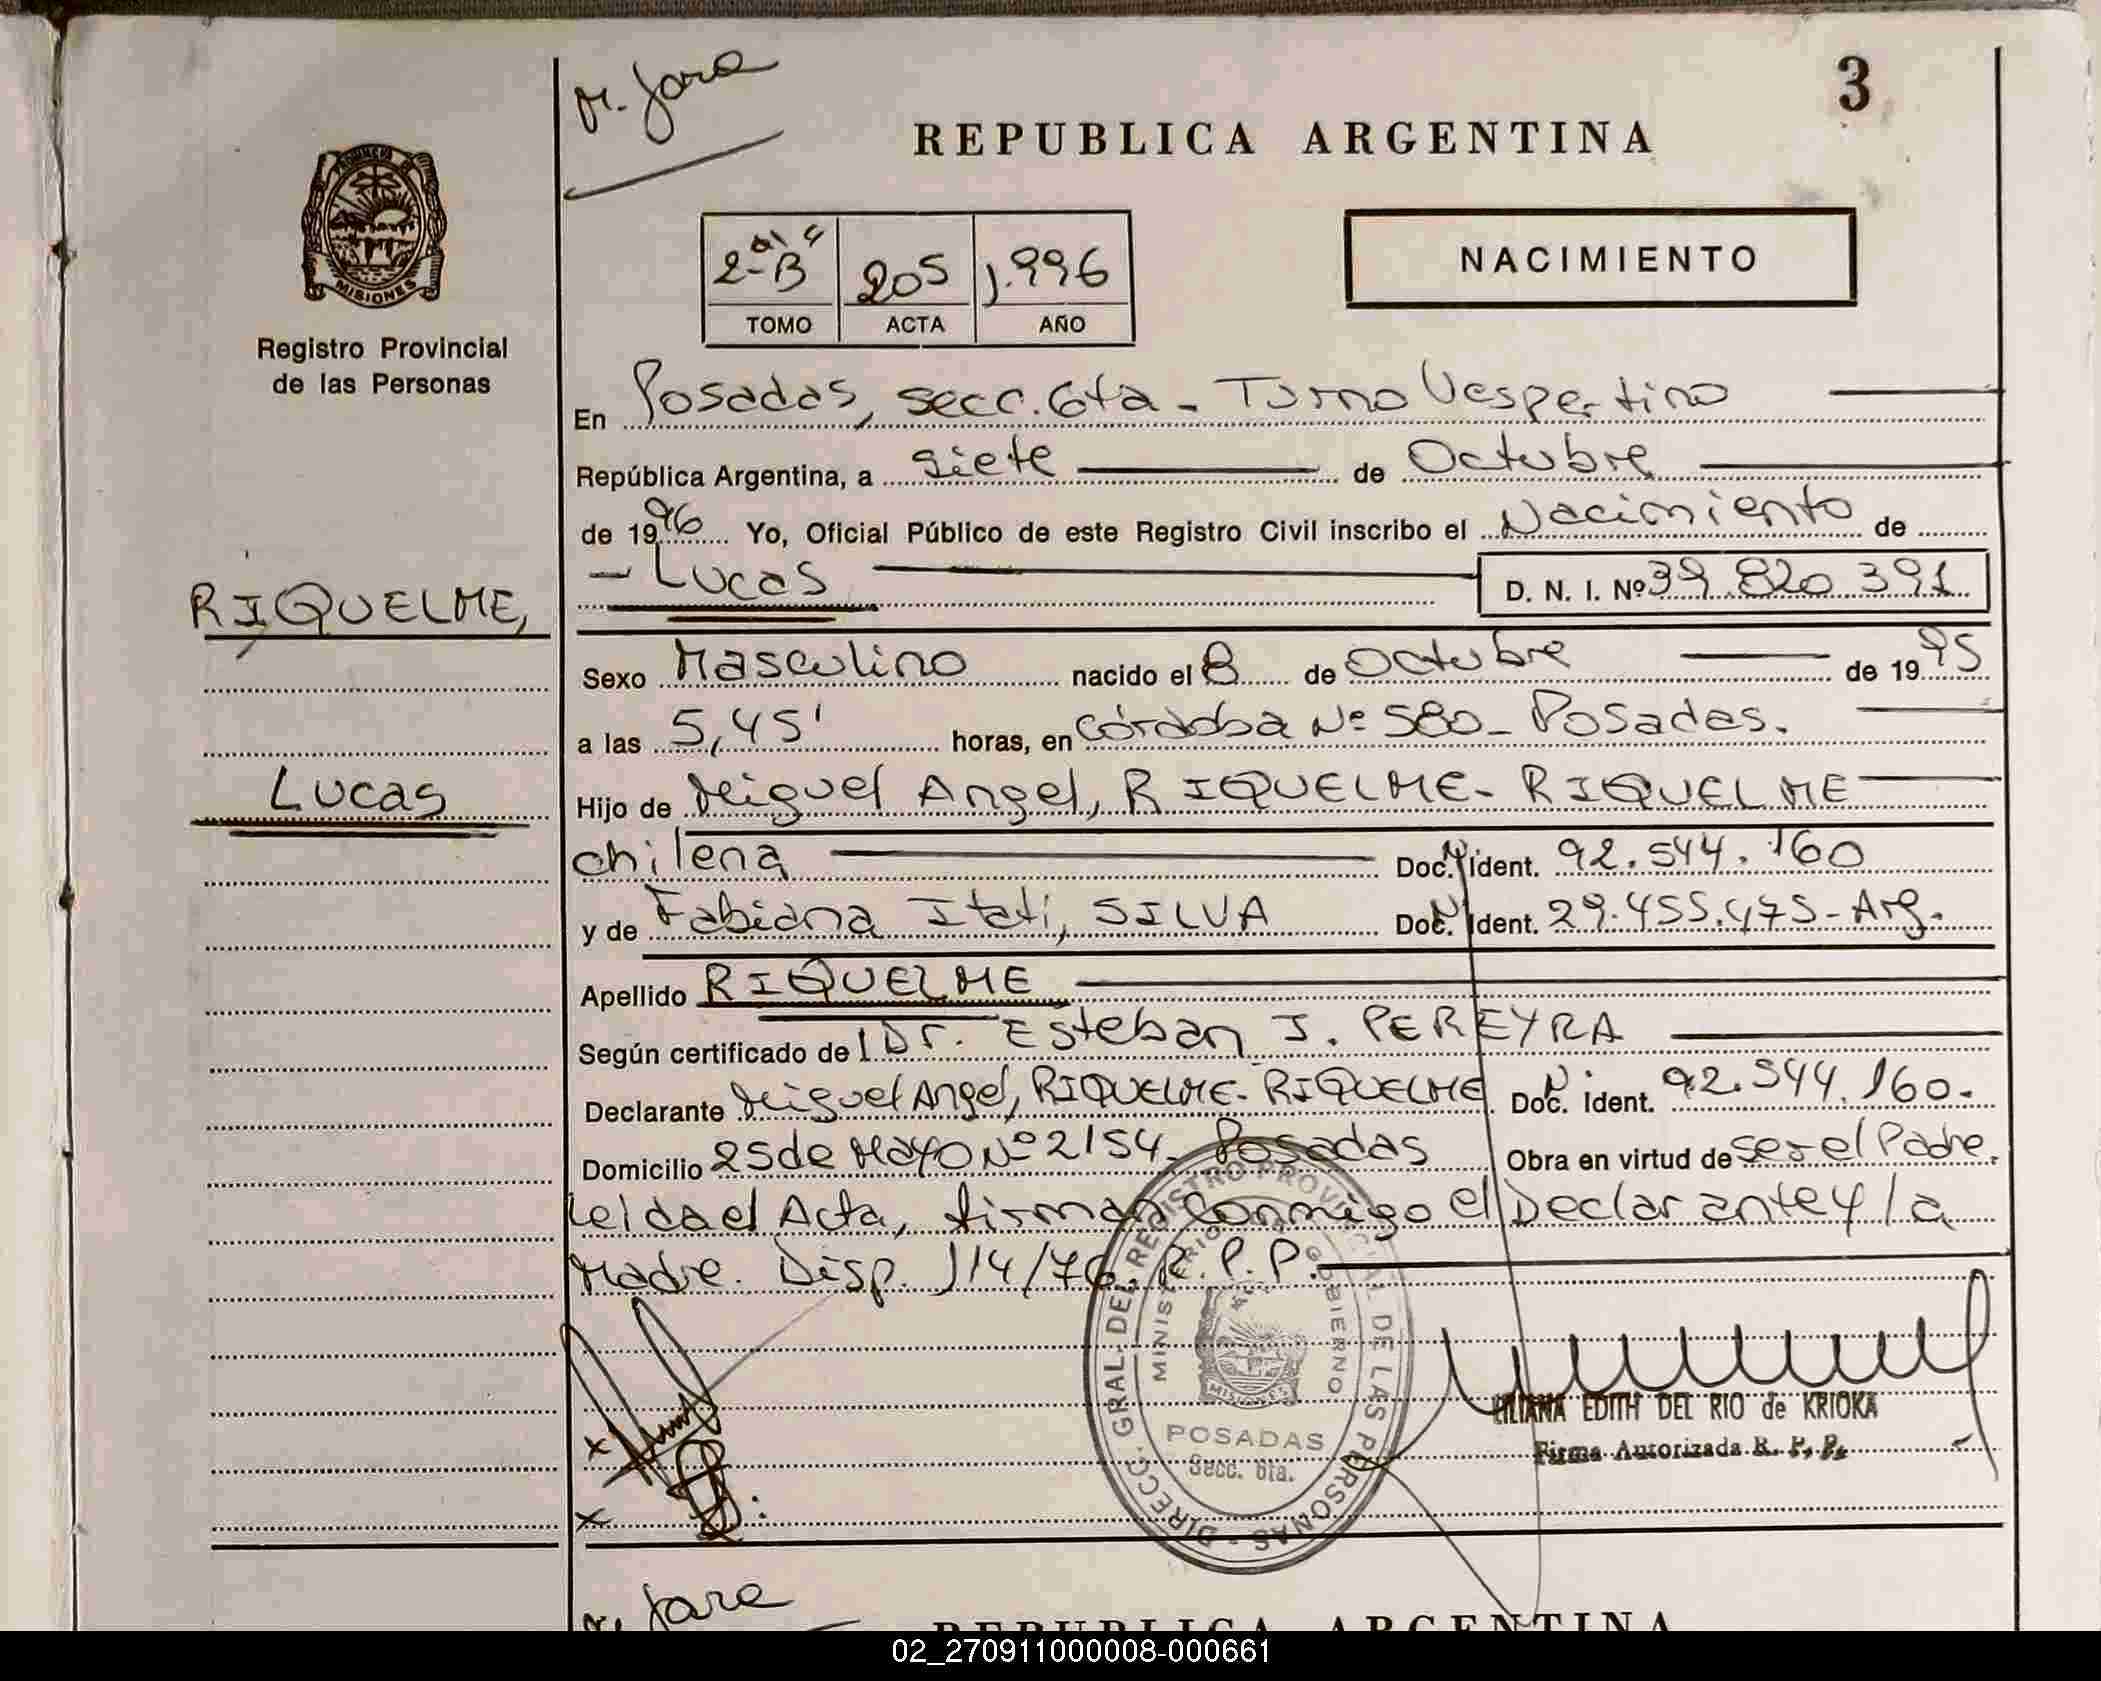 M. Jara
3
REPUBLICA ARGENTINA
PROVINCIA
MISIONES
Registro Provincial
de las Personas
2-B 205 1.996
TOMO ACTA AÑO
NACIMIENTO
En Posadas, secc. 6ta - Turno Vespertino
República Argentina, a siete de Octubre
de 1996 Yo, Oficial Público de este Registro Civil inscribo el Nacimiento de
RIQUELME,
- Lucas D. N. I. Nº 39.820.391
Sexo Masculino nacido el 8 de Octubre de 1995
a las 5,45' horas, en Córdoba Nº 580 - Posadas.
Lucas
Hijo de Miguel Angel, RIQUELME - RIQUELME
chilena Doc. Ident. 92.544.160
y de Fabiana Itati, SILVA Doc. Ident. 29.455.475 - Arg.
Apellido RIQUELME
Según certificado del Dr. Esteban J. PEREYRA
Declarante Miguel Angel, RIQUELME - RIQUELME Doc. Ident. 92.544.160.
Domicilio 25 de Mayo Nº 2154 - Posadas Obra en virtud de ser el Padre.
Leida el Acta, firman conmigo el Declarante y la
Madre. Disp. 114/76. R. P. P.
DIRECC. GRAL. DEL REGISTRO PROVINCIAL DE LAS PERSONAS
MINISTERIO DE GOBIERNO
MISIONES
POSADAS
Secc. 6ta.
LILIANA EDITH DEL RIO de KRIOKA
Firma Autorizada R. P. P.
x
x
M. Jara
REPUBLICA ARGENTINA
02_270911000008-000661